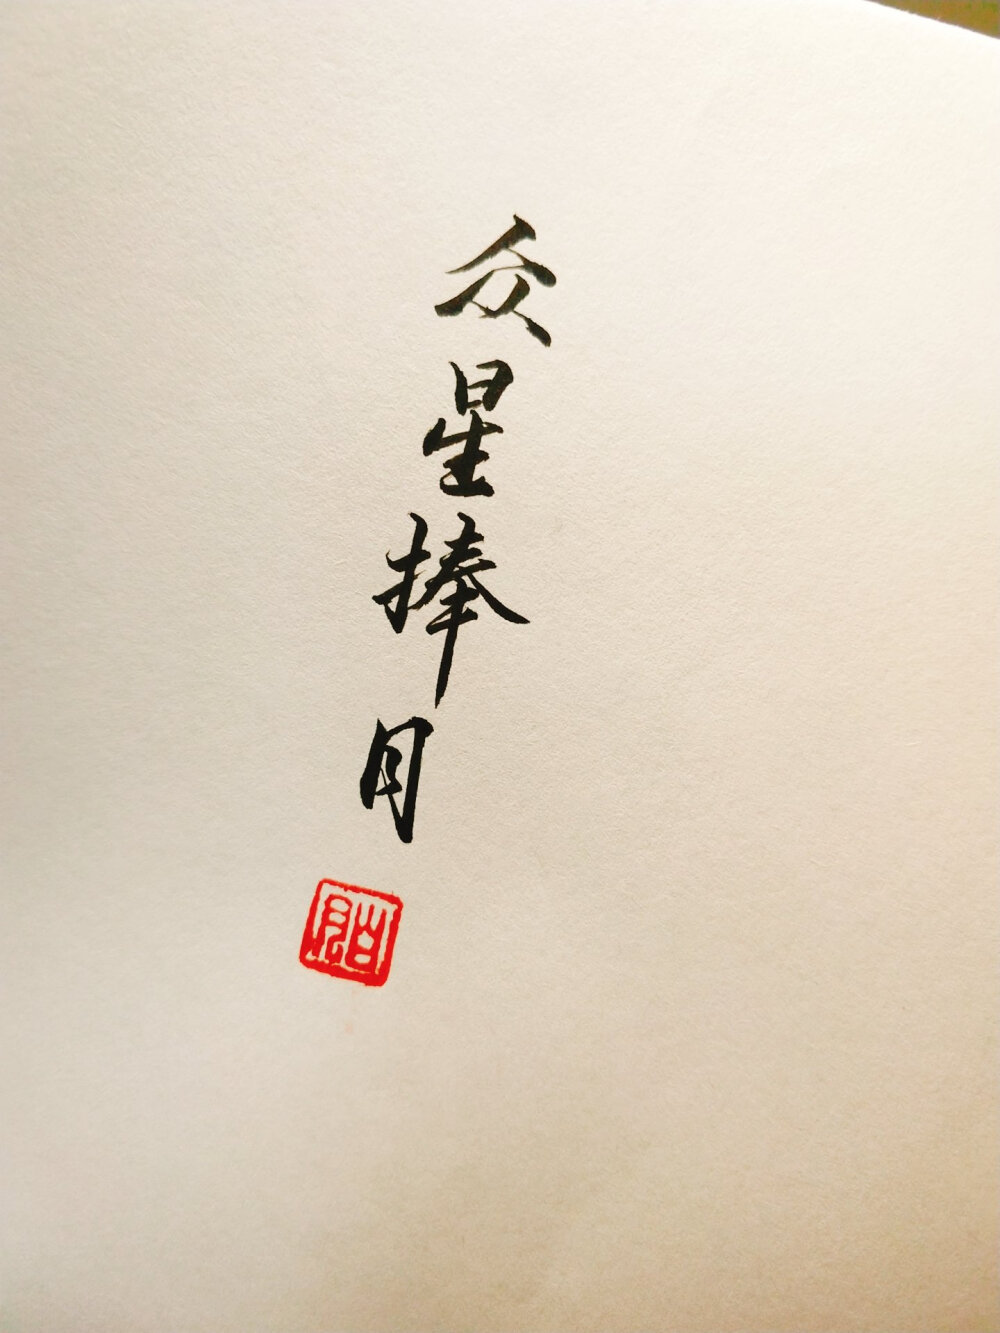 众星捧月